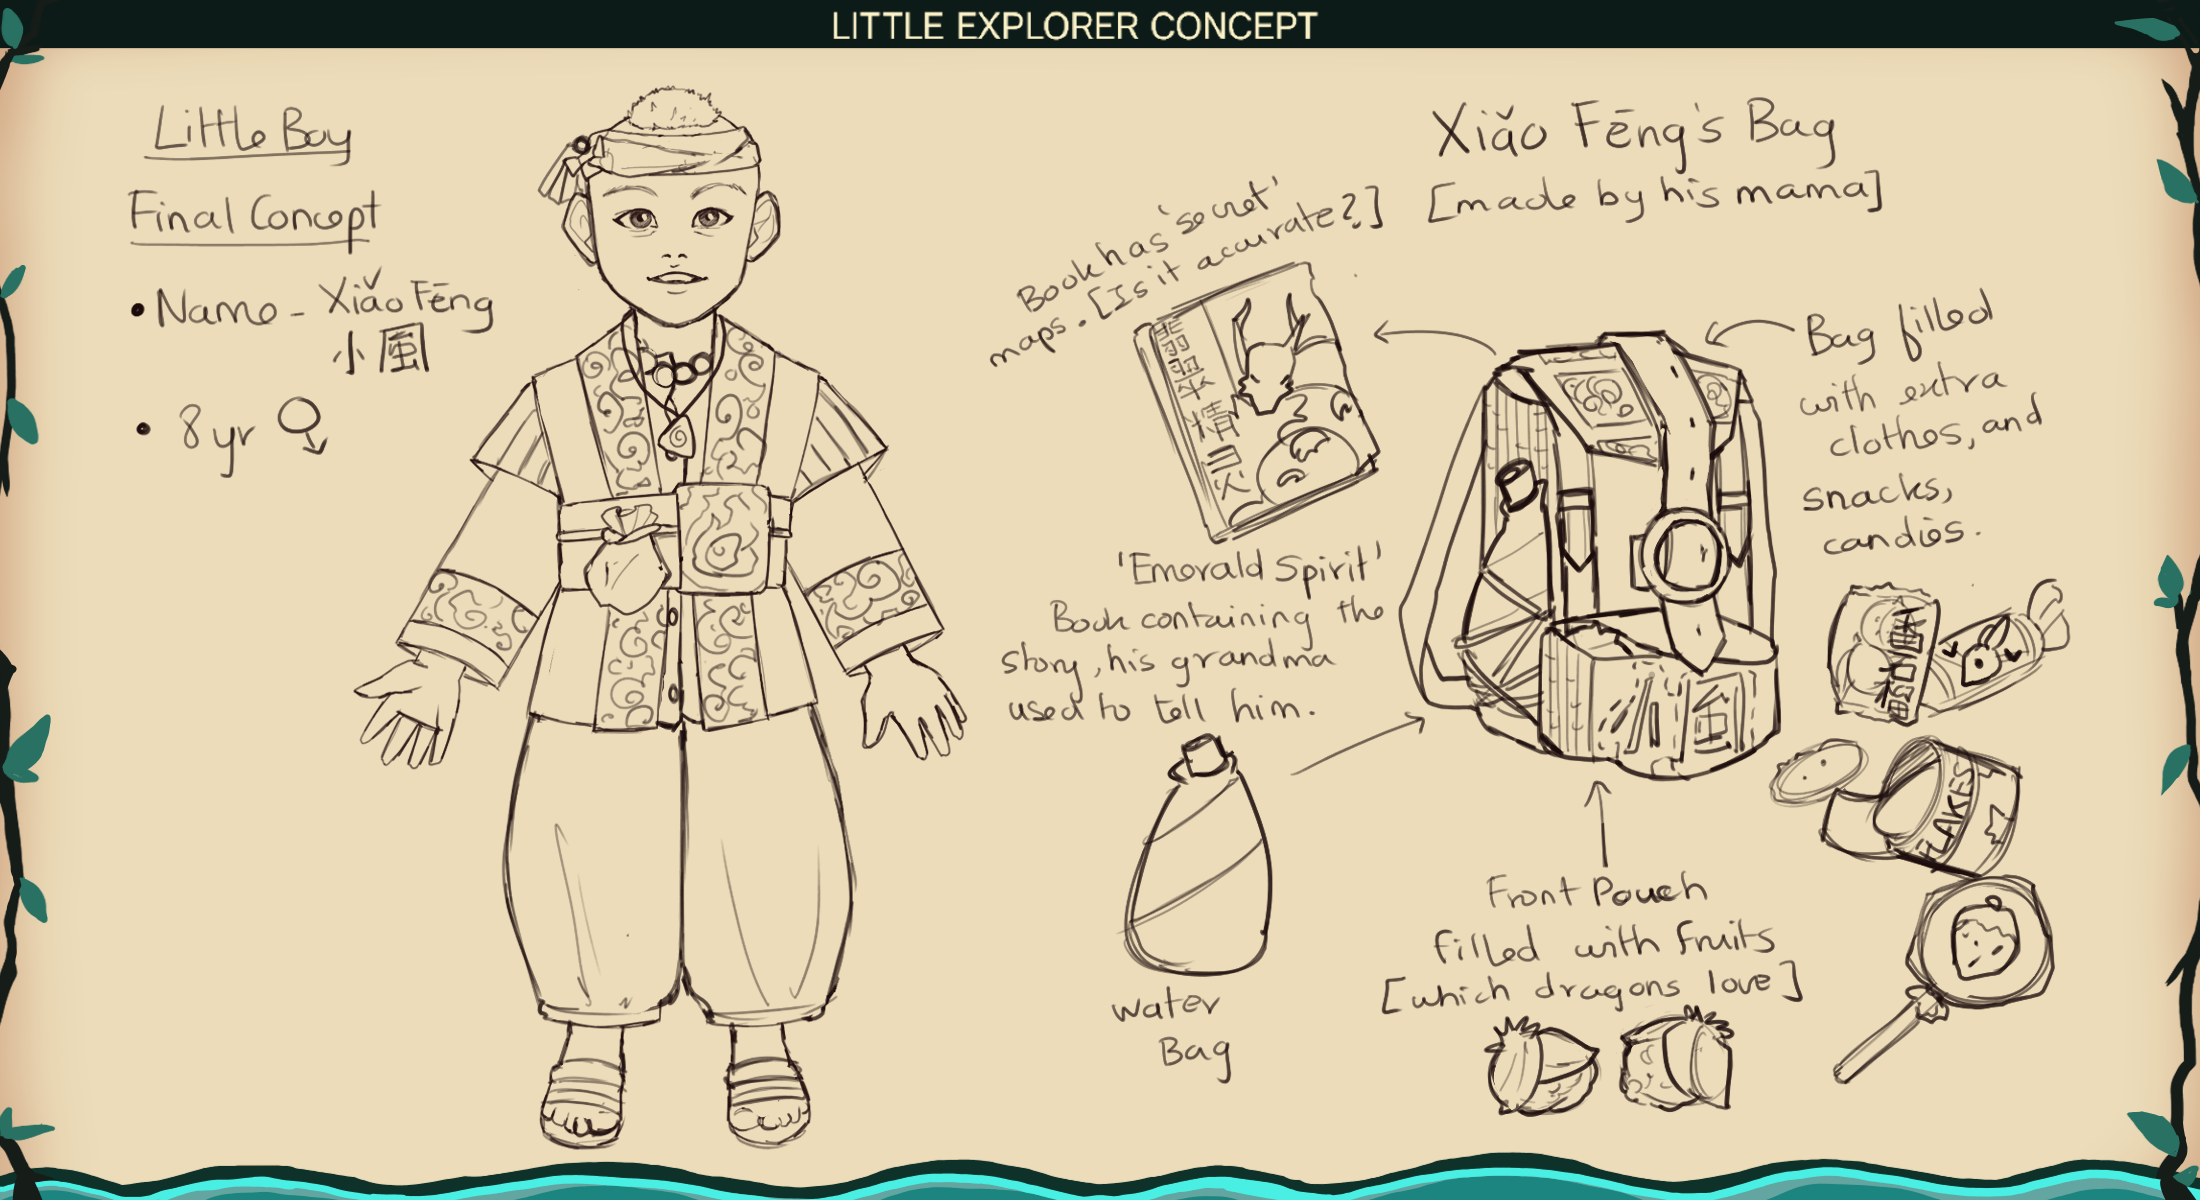 LITTLE EXPLORER CONCEPT
Little Boy
Final Concept
• Name - Xiǎo Fēng
小風
• 8 yr
Xiǎo Fēng's Bag
[made by his mama]
Book has 'secret'
maps. [Is it accurate?]
精灵
'Emerald Spirit'
Book containing the
story, his grandma
used to tell him.
Bag filled
with extra
clothes, and
snacks,
candies.
小風
FLAKES
Water
Bag
Front Pouch
filled with fruits
[which dragons love]